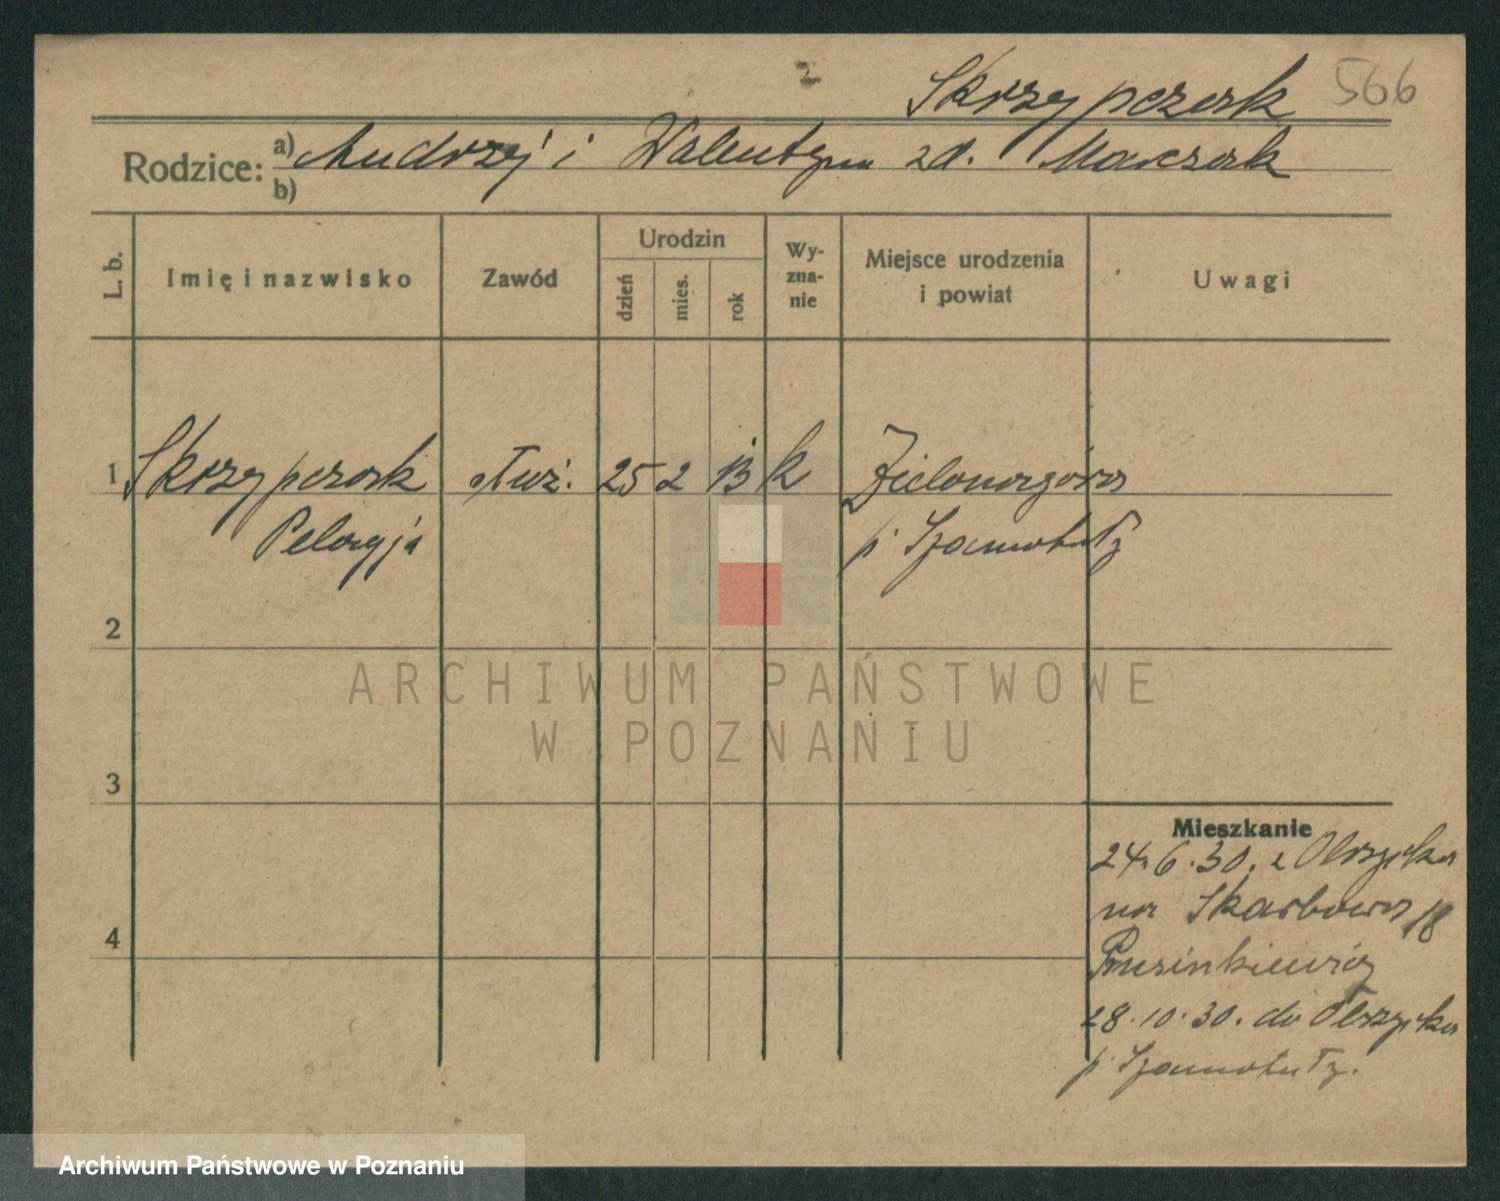 Skrzypczak 566
Rodzice: a) Andrzej i Walentyna zd. Marczak
b)
L. b. Imię i nazwisko Zawód Urodzin dzień mies. rok Wyznanie Miejsce urodzenia i powiat Uwagi
1 Skrzypczak służ. 25 2 13 k Zielonagóra
Pelagja p. Szamotuły
2
ARCHIWUM PAŃSTWOWE
W POZNANIU
3
Mieszkanie
24.6.30. z Obrzycka
na Skarbowa 18
4
28.10.30. do Obrzycka
p. Szamotuły.
Archiwum Państwowe w Poznaniu